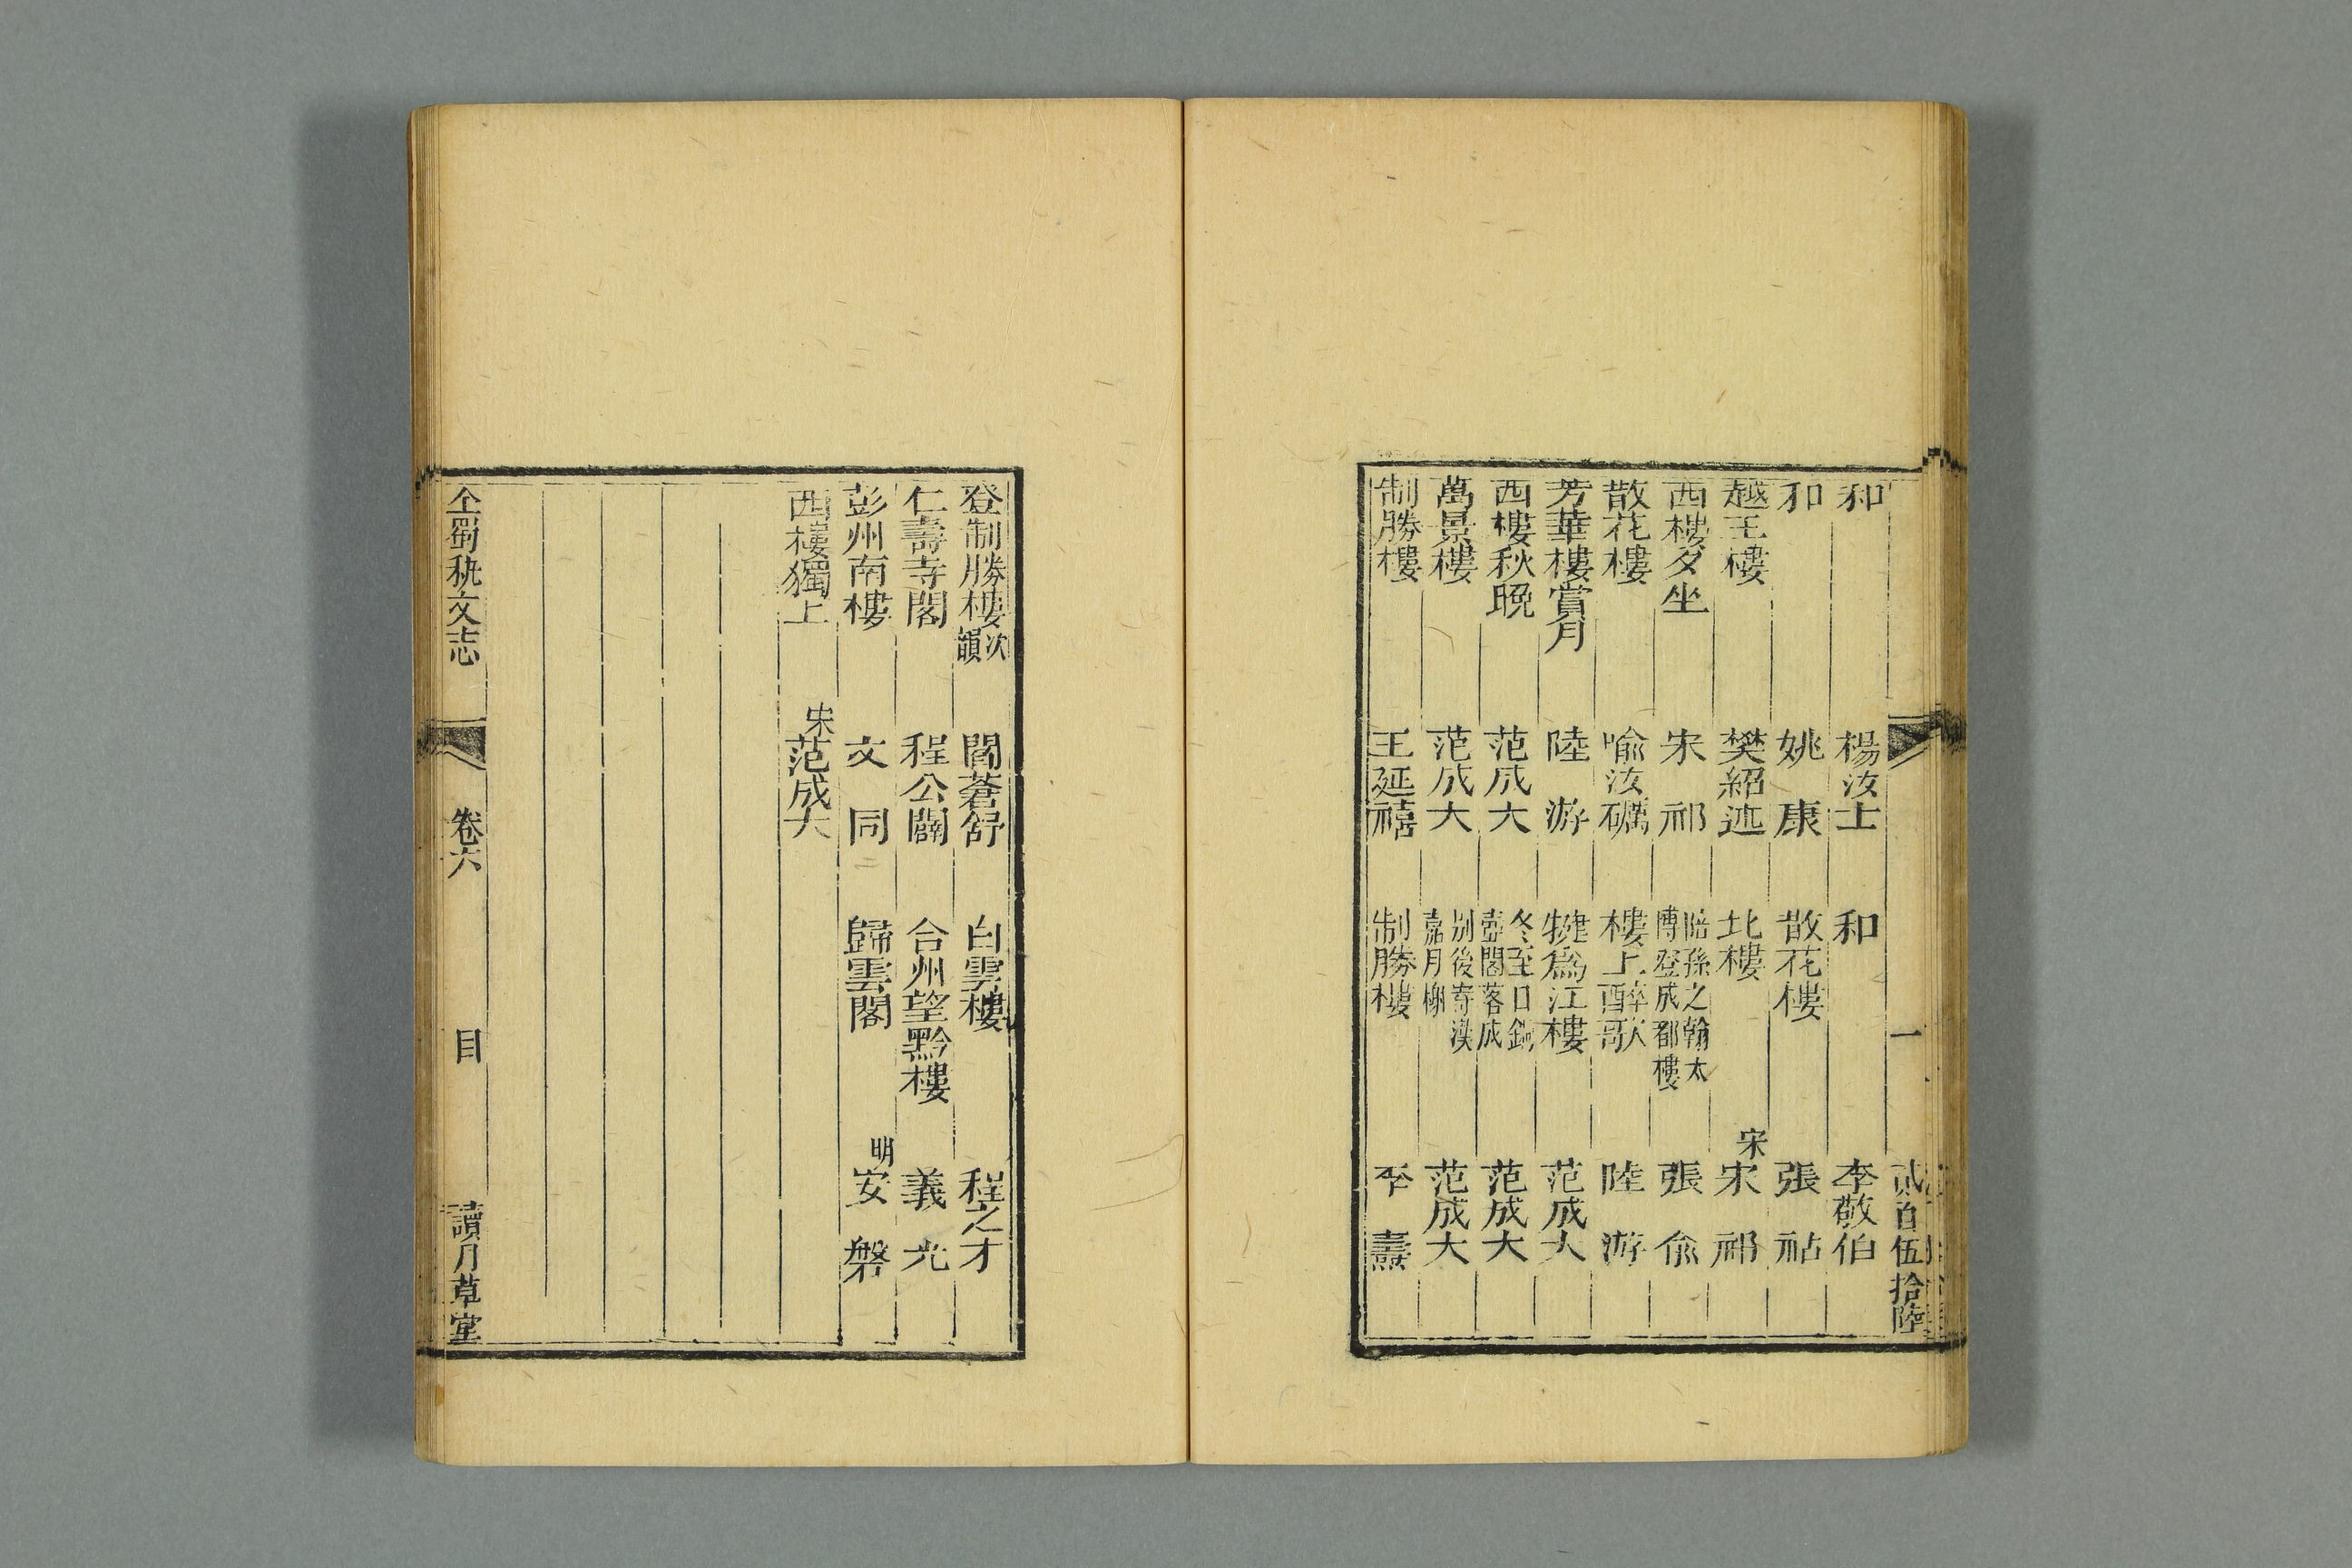 一 貳百伍拾陸
和 楊汝士 和 李敬伯
和 姚康 散花樓 張祜
越王樓 樊紹述 北樓 宋宋祁
西樓夕坐 宋祁 陪孫之翰太博登成都樓 張俞
散花樓 喻汝礪 樓上醉歌 陸游
芳華樓賞月 陸游 犍爲江樓 范成大
西樓秋晚 范成大 冬至日銅壺閣落成 范成大
萬景樓 范成大 别後寄漢嘉月榭 范成大
制勝樓 王延禧 制勝樓 李燾
登制勝樓次韻 閻蒼舒 白雲樓 程之才
仁壽寺閣 程公闢 合州望黔樓 義光
彭州南樓 文同 歸雲閣 明安磐
西樓獨上 宋范成大
全蜀秇文志 卷六 目 讀月草堂